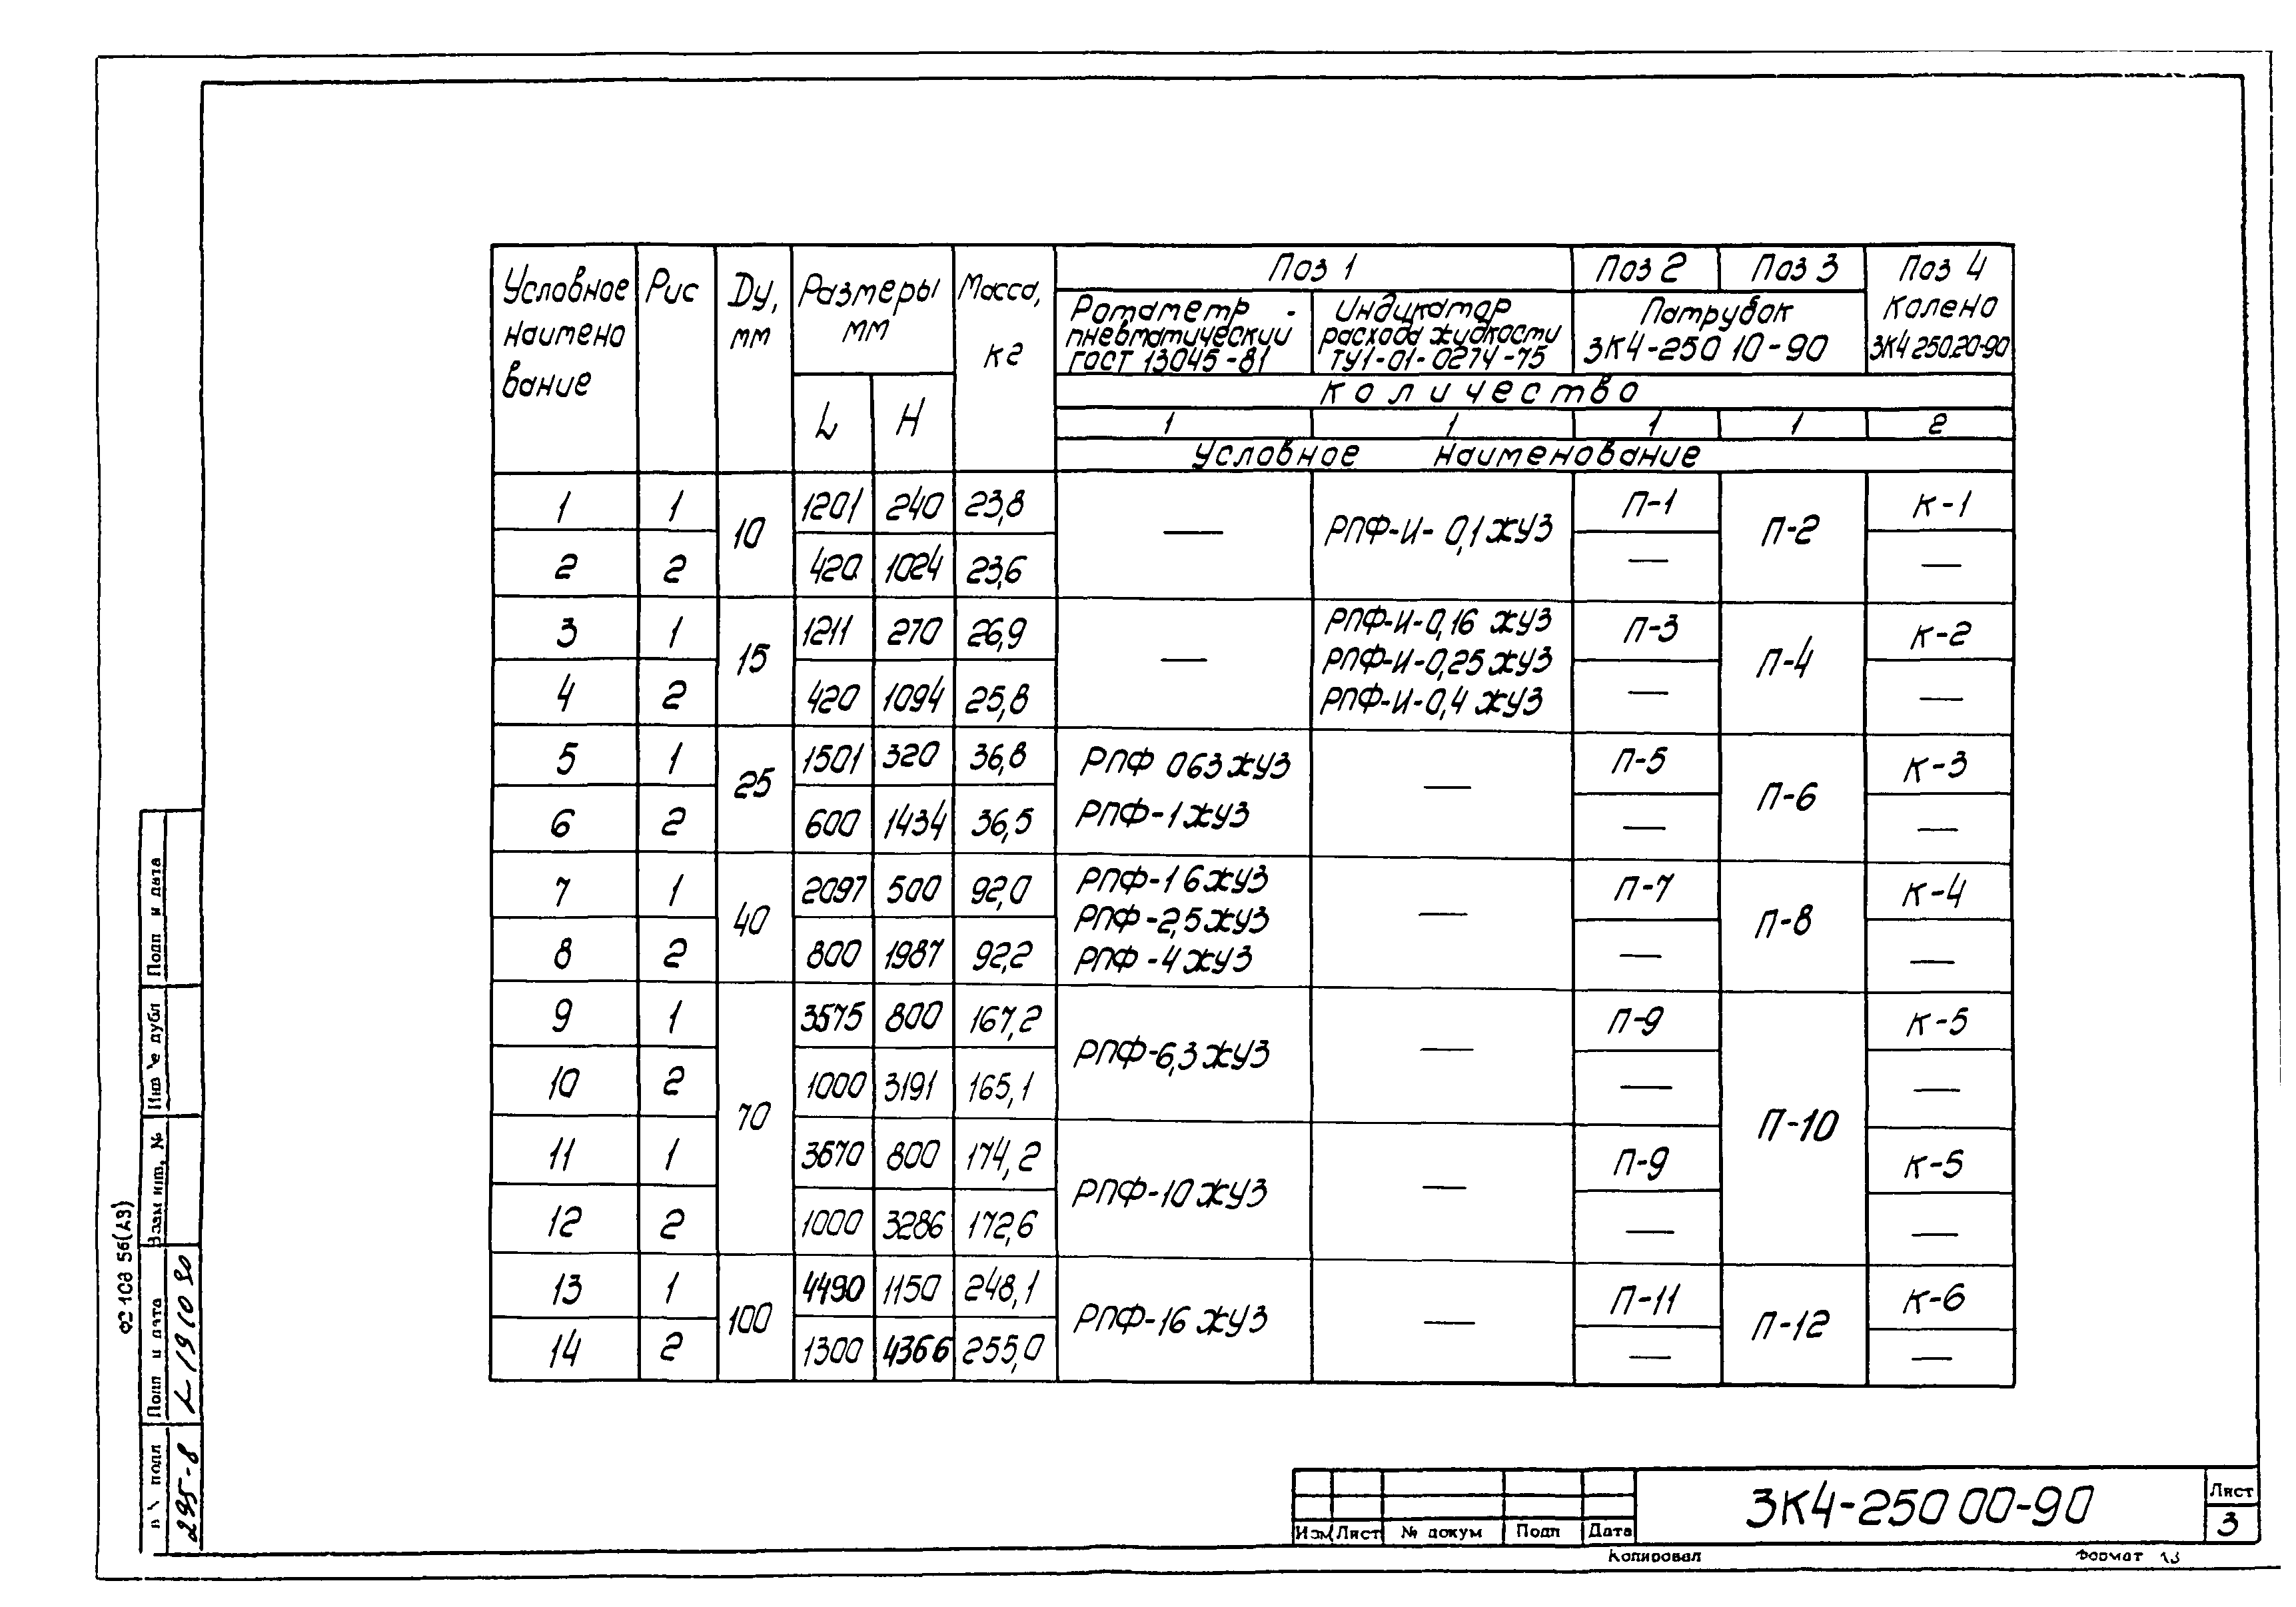 Условное наимено вание | Рис | Dу, мм | Размеры мм | Масса, кг | Поз 1 | Поз 2 | Поз 3 | Поз 4
Ротаметр - пневматический ГОСТ 13045-81 | Индикатор расхода жидкости ТУ1-01-0274-75 | Патрубок ЗК4-250 10-90 | Колено ЗК4 250.20-90
L | H
Количество
1 | 1 | 1 | 1 | 2
Условное наименование
1 | 1 | 10 | 1201 | 240 | 23,8 | — | РПФ-И-0,1 ЖУЗ | П-1 | П-2 | К-1
2 | 2 | 420 | 1024 | 23,6 | — | —
3 | 1 | 15 | 1211 | 270 | 26,9 | — | РПФ-И-0,16 ЖУЗ | П-3 | П-4 | К-2
РПФ-И-0,25 ЖУЗ
4 | 2 | 420 | 1094 | 25,8 | РПФ-И-0,4 ЖУЗ | — | —
5 | 1 | 25 | 1501 | 320 | 36,8 | РПФ 063 ЖУЗ | — | П-5 | П-6 | К-3
6 | 2 | 600 | 1434 | 36,5 | РПФ-1 ЖУЗ | — | —
7 | 1 | 40 | 2097 | 500 | 92,0 | РПФ-1 6 ЖУЗ | — | П-7 | П-8 | К-4
РПФ-2,5 ЖУЗ
8 | 2 | 800 | 1987 | 92,2 | РПФ-4 ЖУЗ | — | —
9 | 1 | 70 | 3575 | 800 | 167,2 | РПФ-6,3 ЖУЗ | — | П-9 | П-10 | К-5
10 | 2 | 1000 | 3191 | 165,1 | — | —
11 | 1 | 3670 | 800 | 174,2 | РПФ-10 ЖУЗ | — | П-9 | К-5
12 | 2 | 1000 | 3286 | 172,6 | — | —
13 | 1 | 100 | 4490 | 1150 | 248,1 | РПФ-16 ЖУЗ | — | П-11 | П-12 | К-6
14 | 2 | 1300 | 4366 | 255,0 | — | —
Подп и дата
Инв № дубл
Взам инв. №
Подп и дата
подл
295-8
Ф2 108 56(А3)
Изм Лист № докум Подп Дата
ЗК4-250 00-90
Лист
3
Копировал
Формат А3